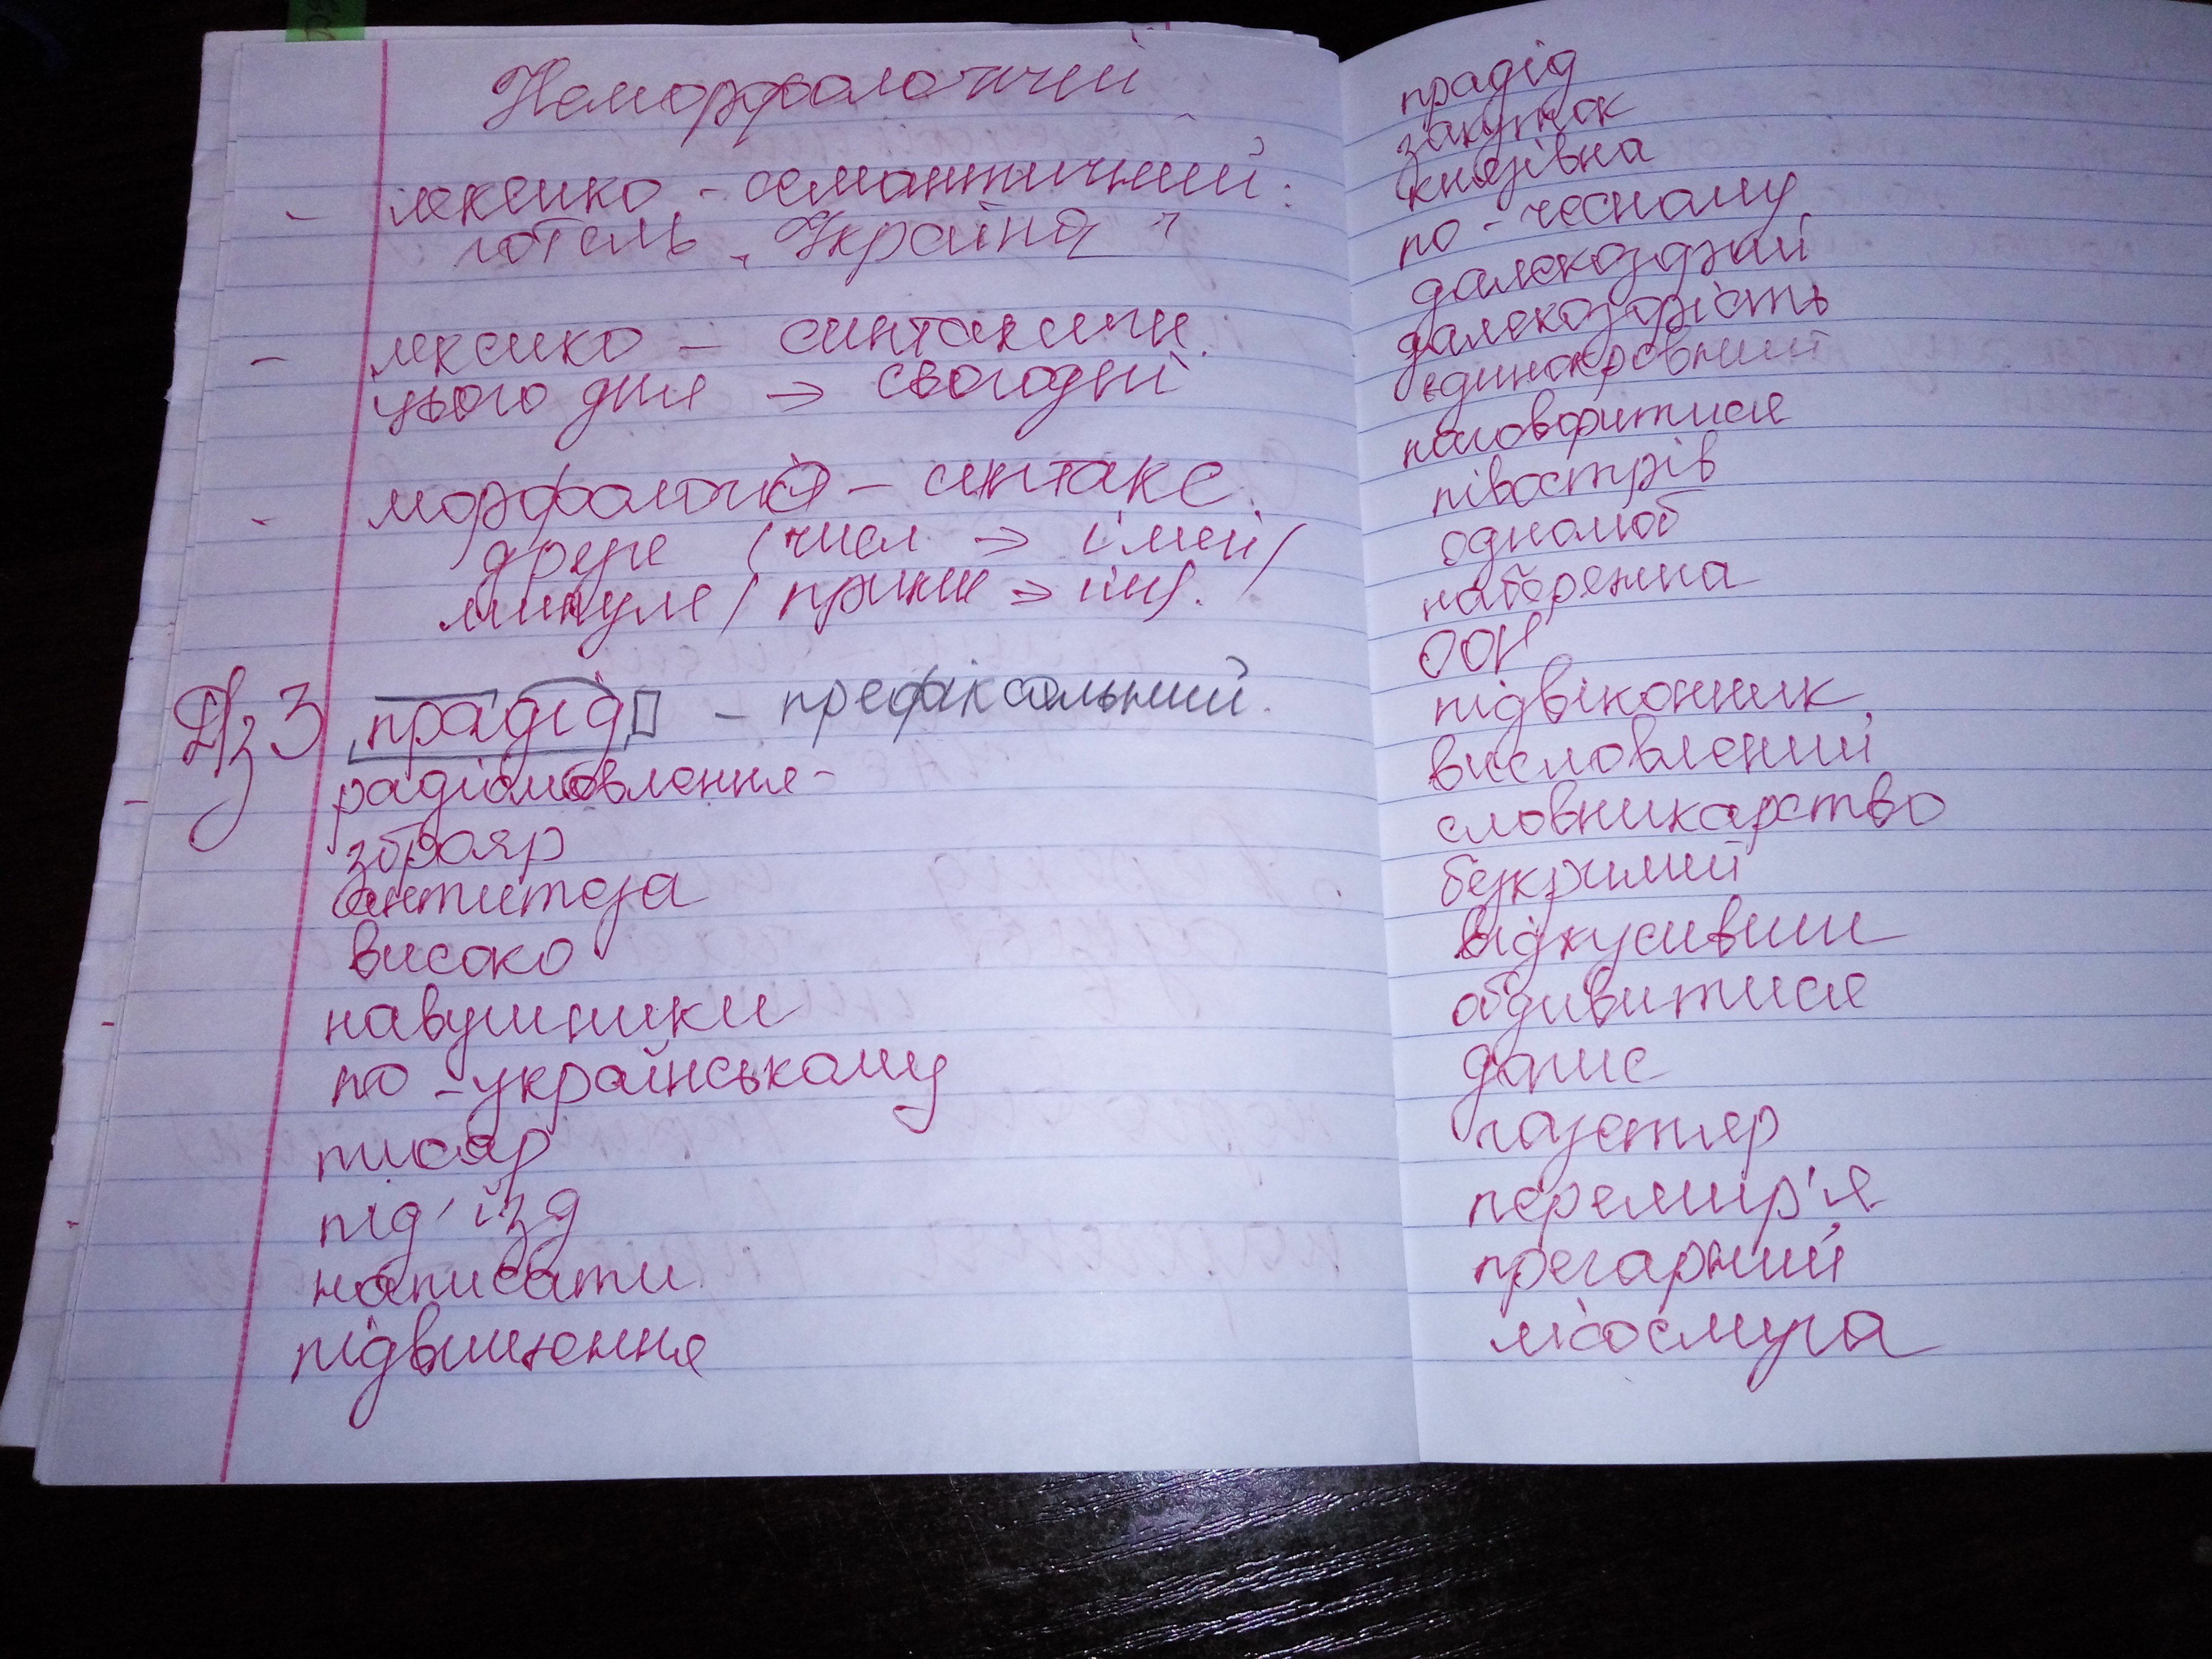 Неморфологічний
- лексико - семантичний:
готель „Україна"
- лексико - синтаксичн.
цього дня → сьогодні
- морфолого - синтакс.
друге (числ → імен)
минуле (прикм → ім).
Д/з прадід - префіксальний.
радіомовлення -
зброяр
антитеза
високо
навушники
по - українському
писар
під'їзд
написати
підвищення
прадід
закуток
князівна
по - чесному
далекозорий
далекозорість
єдинокровний
наговоритися
півострів
однолюб
набережна
ООН
підвіконник
висловлений
словникарство
безкрилий
відкусивши
обдивитися
допис
газетяр
перемир'я
прегарний
лісосмуга